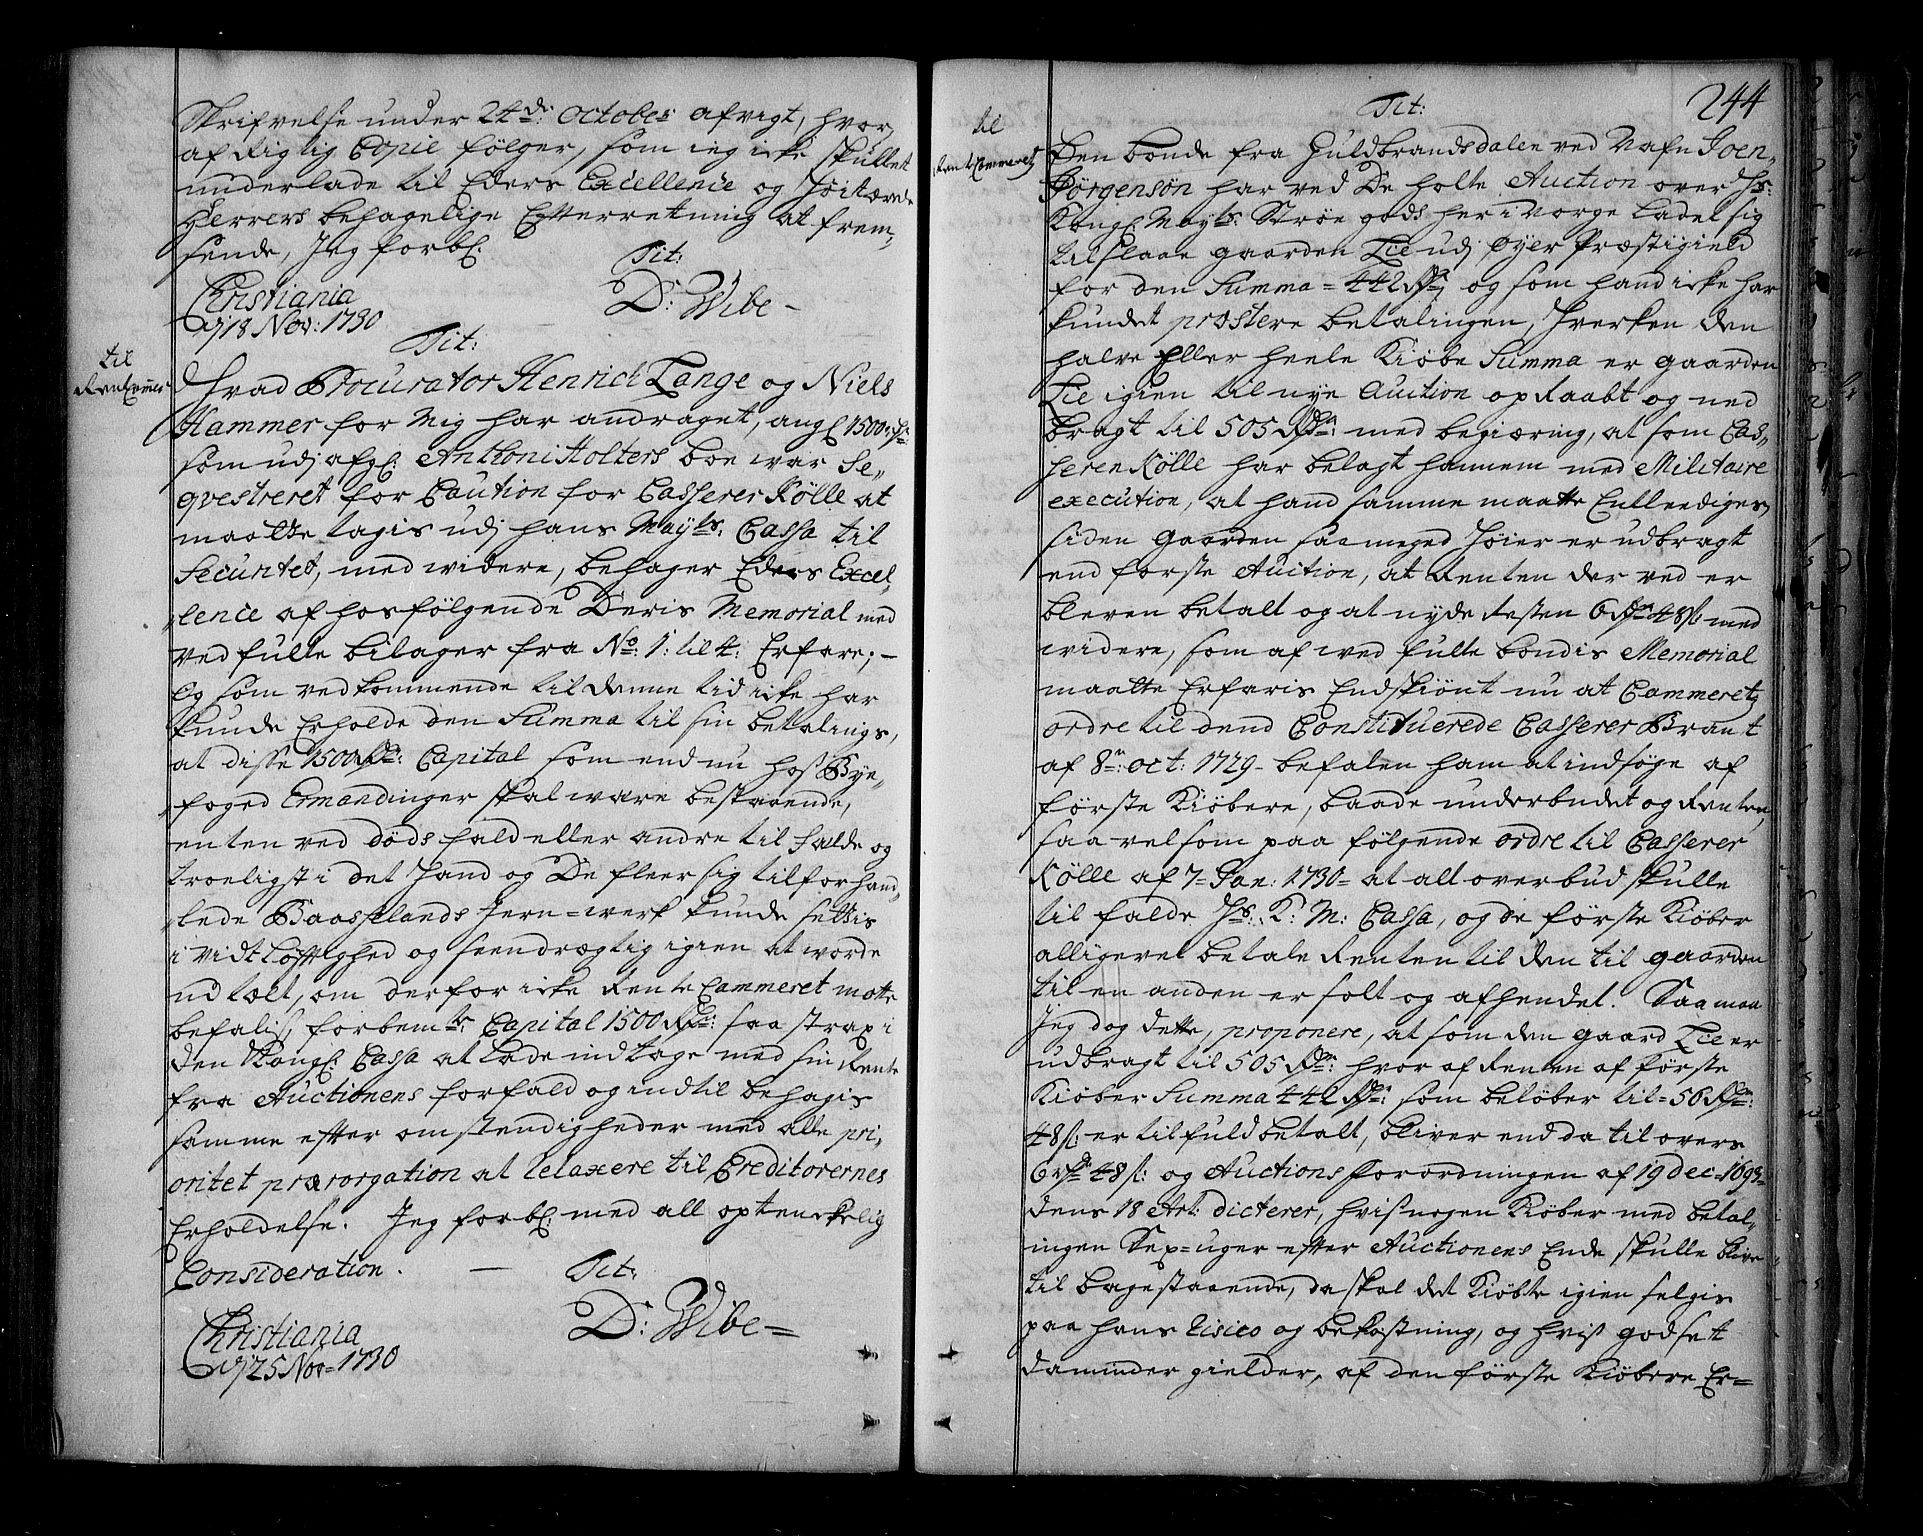 Skrifvelse under 24de: October afvigt, hvor,
af Rigtig Copie følger, som ieg icke skullet
underlade til Eders Excellence og Høitærede
Herrers behagelige Efterretning at frem,
sende, Jeg forbl:
Tit:
Christiania
d 18 Nov: 1730
D: Wibe -
til
RenteCammer
Tit:
Hvad Procurator Henrich Lange og Niels
Hammer for Mig har andraget, angl 1500 rd:
som udj afg: Anthoni Holters boe war Se,
qvestreret for Caution for Casserer Kølle at
maatte tagis udj hans Mayts: Cassa til
Securitet, med widere, behager Eders Excel,
lence af hosfølgende Deris Memorial med
ved fulte bilager fra No: 1: til 4: Erfare; -
Og som vedkommende til denne tid icke har
kunde Erholde den Summa til sin betalings,
at disse 1500 Rdr: Capital som end nu hos Bye,
foged Ermandinger skal ware bestaaende,
enten ved dødsfald eller andre tilfalde og
troeligst i det Hand og De fleer sig tilforhand,
lede Baasselands Jern=werk kunde settis
i vidtløftighed og seendrægtig igien at worde
udtalt, om derfor icke Rente Cammeret motte
befalis, forbemte: Capital 1500 Rdr: saa strax i
den Kongl: Cassa at lade indtage med sin Rente
fra Auctionens forfald og indtil behagis
samme efter omstendigheder med alle pri,
oritet prærorgation at relaxere til Creditorernes
Erholdelse. Jeg forbl: med all optenckelig
Consideration. - Tit:
Christiania
d 25 Nov= 1730
D: Wibe =
244
til
Rente Cammeret
Tit:
Den bonde fra Guldbrandsdalen ved Nafn Joen,
Jörgensön har ved De holte Auction over Hs:
Kongl: Mayts: Strøe gods her i Norge ladet sig
tilslaae gaarden Lie udj Øyer Præstigield
for den Summa = 442 Rdr, og som hand icke har
kundet præstere betalingen, Hverken den
halve Eller heele Kiøbe Summa er gaarden
Lie igien til nye Auction opraabt og ned
bragt til 505 Rdr: med begiæring, at som Cas,
seren Kölle har belagt hannem med Militaire
execution, at hand samme maatte Entleediges,
siden Gaarden saa meged Høier er udbragt
end forste Auction, at Renten der ved er
bleven betalt og at nyde Resten 6 Rdr 48 s: med
widere, som af wed fulte bondis Memorial
maatte Erfaris Endskiönt nu at Cammeretz
ordre til dend Constituerede Casserer Brant
af 8de: Oct: 1729 - befalen ham at indsøge af
første Kiøbere, baade underbudet og Renten,
saavelsom paa følgende ordre til Casserer
Kölle af 7 = Jan: 1730 = at alt overbud skulle
tilfalde Hs: K: M: Cassa, og de første Kiøber
alligevel betale Renten til den til gaarden
til en anden er solt og afhendet. Saa maa
Jeg dog dette, proponere, at som den gaard Lie er
udbragt til 505 Rdr: hvor af Renten af første
Kiøber Summa 442 Rdr: som beløber til = 56 Rdr:
48 s: er til fuld betalt, bliver end da til overs
6 rd 48 s: og Auctions forordningen af 19 Dec: 1693
dens 18 Art: dicterer, hvis nogen Kiøber med betal,
ingen Sex=uger efter Auctionens Ende skulle blive
tilbagestaaende, da skal det Kiøbte igien selgis
paa hans risico og bekostning, og hvis godset
da minder gielder, af den første Kiøbere Er=